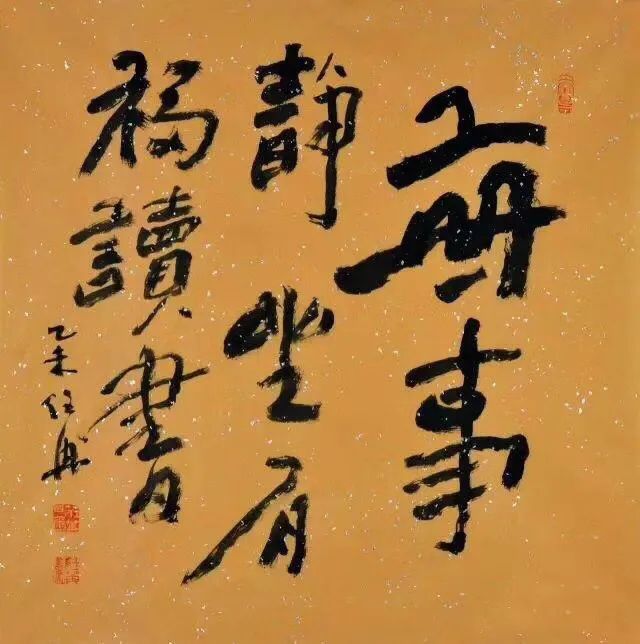 無事
静坐有
福讀書
乙未任冉